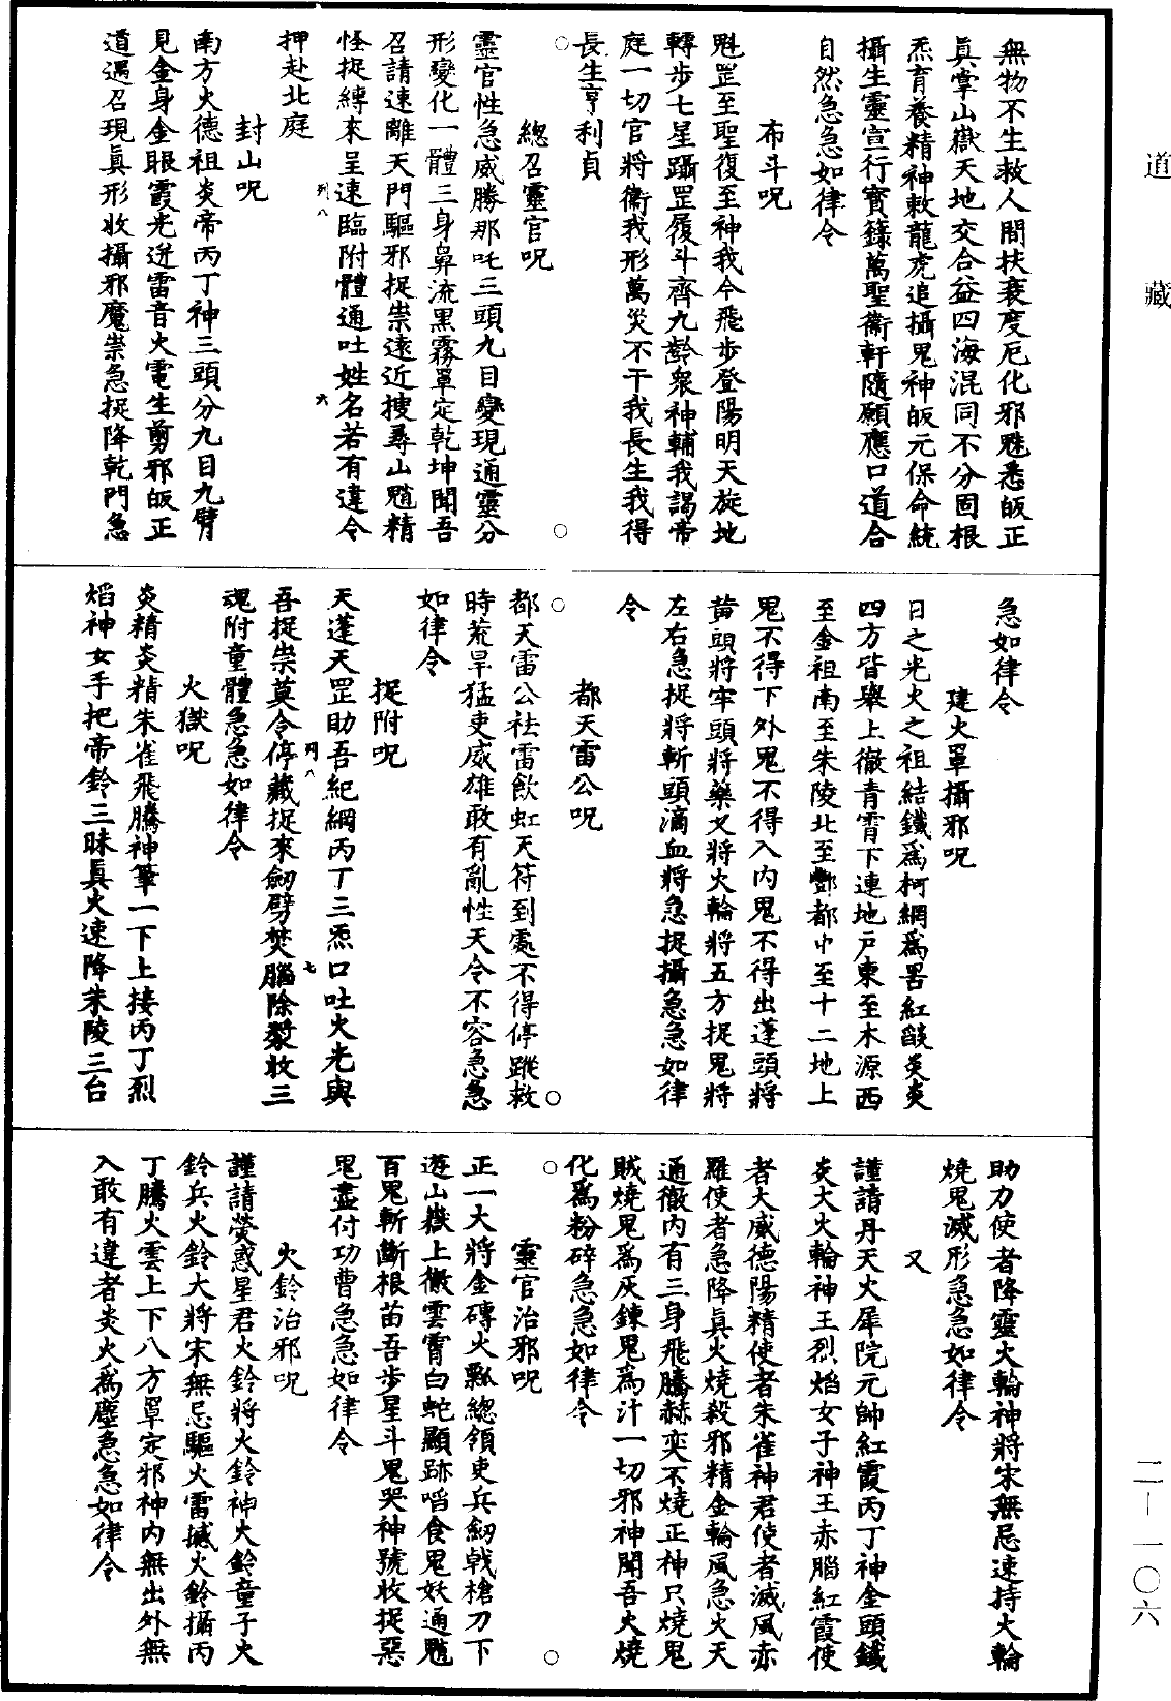 道藏
無物不生救人間扶衰度厄化邪魅悉皈正
真掌山嶽天地交合益四海混同不分固根
炁育養精神敕龍虎追攝鬼神皈元保命統
攝生靈宣行寳籙萬聖衞軒隨願應口道合
自然急急如律令
布斗呪
魁罡至聖復至神我今飛步登陽明天旋地
轉步七星躡罡履斗齊九齡衆神輔我謁帝
庭一切官將衞我形萬災不干我長生我得
長生亨利貞
○總召靈官呪○
靈官性急威勝那吒三頭九目變現通靈分
形變化一體三身鼻流黑霧罩定乾坤聞吾
召請速離天門驅邪捉祟遠近搜尋山魈精
怪捉縛來呈速臨附體通吐姓名若有違令
列八 六
押赴北庭
封山呪
南方火德祖炎帝丙丁神三頭分九目九臂
見金身金眼霞光迸雷音火電生剪邪皈正
道遇召現眞形收攝邪魔祟急捉降乾門急
急如律令
建火罩攝邪呪
日之光火之祖結鐵爲柯網爲罟紅燄炎炎
四方皆舉上徹青霄下連地戸東至木源西
至金祖南至朱陵北至酆都中至十二地上
鬼不得下外鬼不得入内鬼不得出蓬頭將
黄頭將牢頭將藥叉將火輪將五方捉鬼將
左右急捉將斬頭滴血將急捉攝急急如律
令
○都天雷公呪○
都天雷公袪雷飲虹天符到處不得停蹤救
時荒旱猛吏威雄敢有亂性天令不容急急
如律令
捉附呪
天蓬天罡助吾紀綱丙丁三炁口吐火光與
列八 七
吾捉祟莫令停藏捉來劒劈焚腦除𣩠收三
魂附童體急急如律令
火獄呪
炎精炎精朱雀飛騰神筆一下上接丙丁烈
焰神女手把帝鈴三昧眞火速降朱陵三台
助力使者降靈火輪神將宋無忌速持火輪
燒鬼滅形急急如律令
又
謹請丹天火犀院元帥紅霞丙丁神金頭鐵
炎大火輪神王烈焰女子神王赤腦紅霞使
者大威德陽精使者朱雀神君使者滅風赤
羅使者急降眞火燒殺邪精金輪風急火天
通徹内有三身飛騰赫奕不燒正神只燒鬼
賊燒鬼爲灰鍊鬼爲汁一切邪神聞吾火燒
化爲粉碎急急如律令
○靈官治邪呪○
正一大將金磚火瓢總領吏兵劒戟槍刀下
遊山嶽上徹雲霄白蛇顯跡啗食鬼妖通魈
百鬼斬斷根苗吾步星斗鬼哭神號收捉惡
鬼盡付功曹急急如律令
火鈴治邪呪
謹請熒惑星君火鈴將火鈴神大鈴童子火
鈴兵火鈴大將宋無忌驅火雷摵火鈴攝丙
丁騰火雲上下八方罩定邪神内無出外無
入敢有違者炎火爲塵急急如律令
二-一〇六